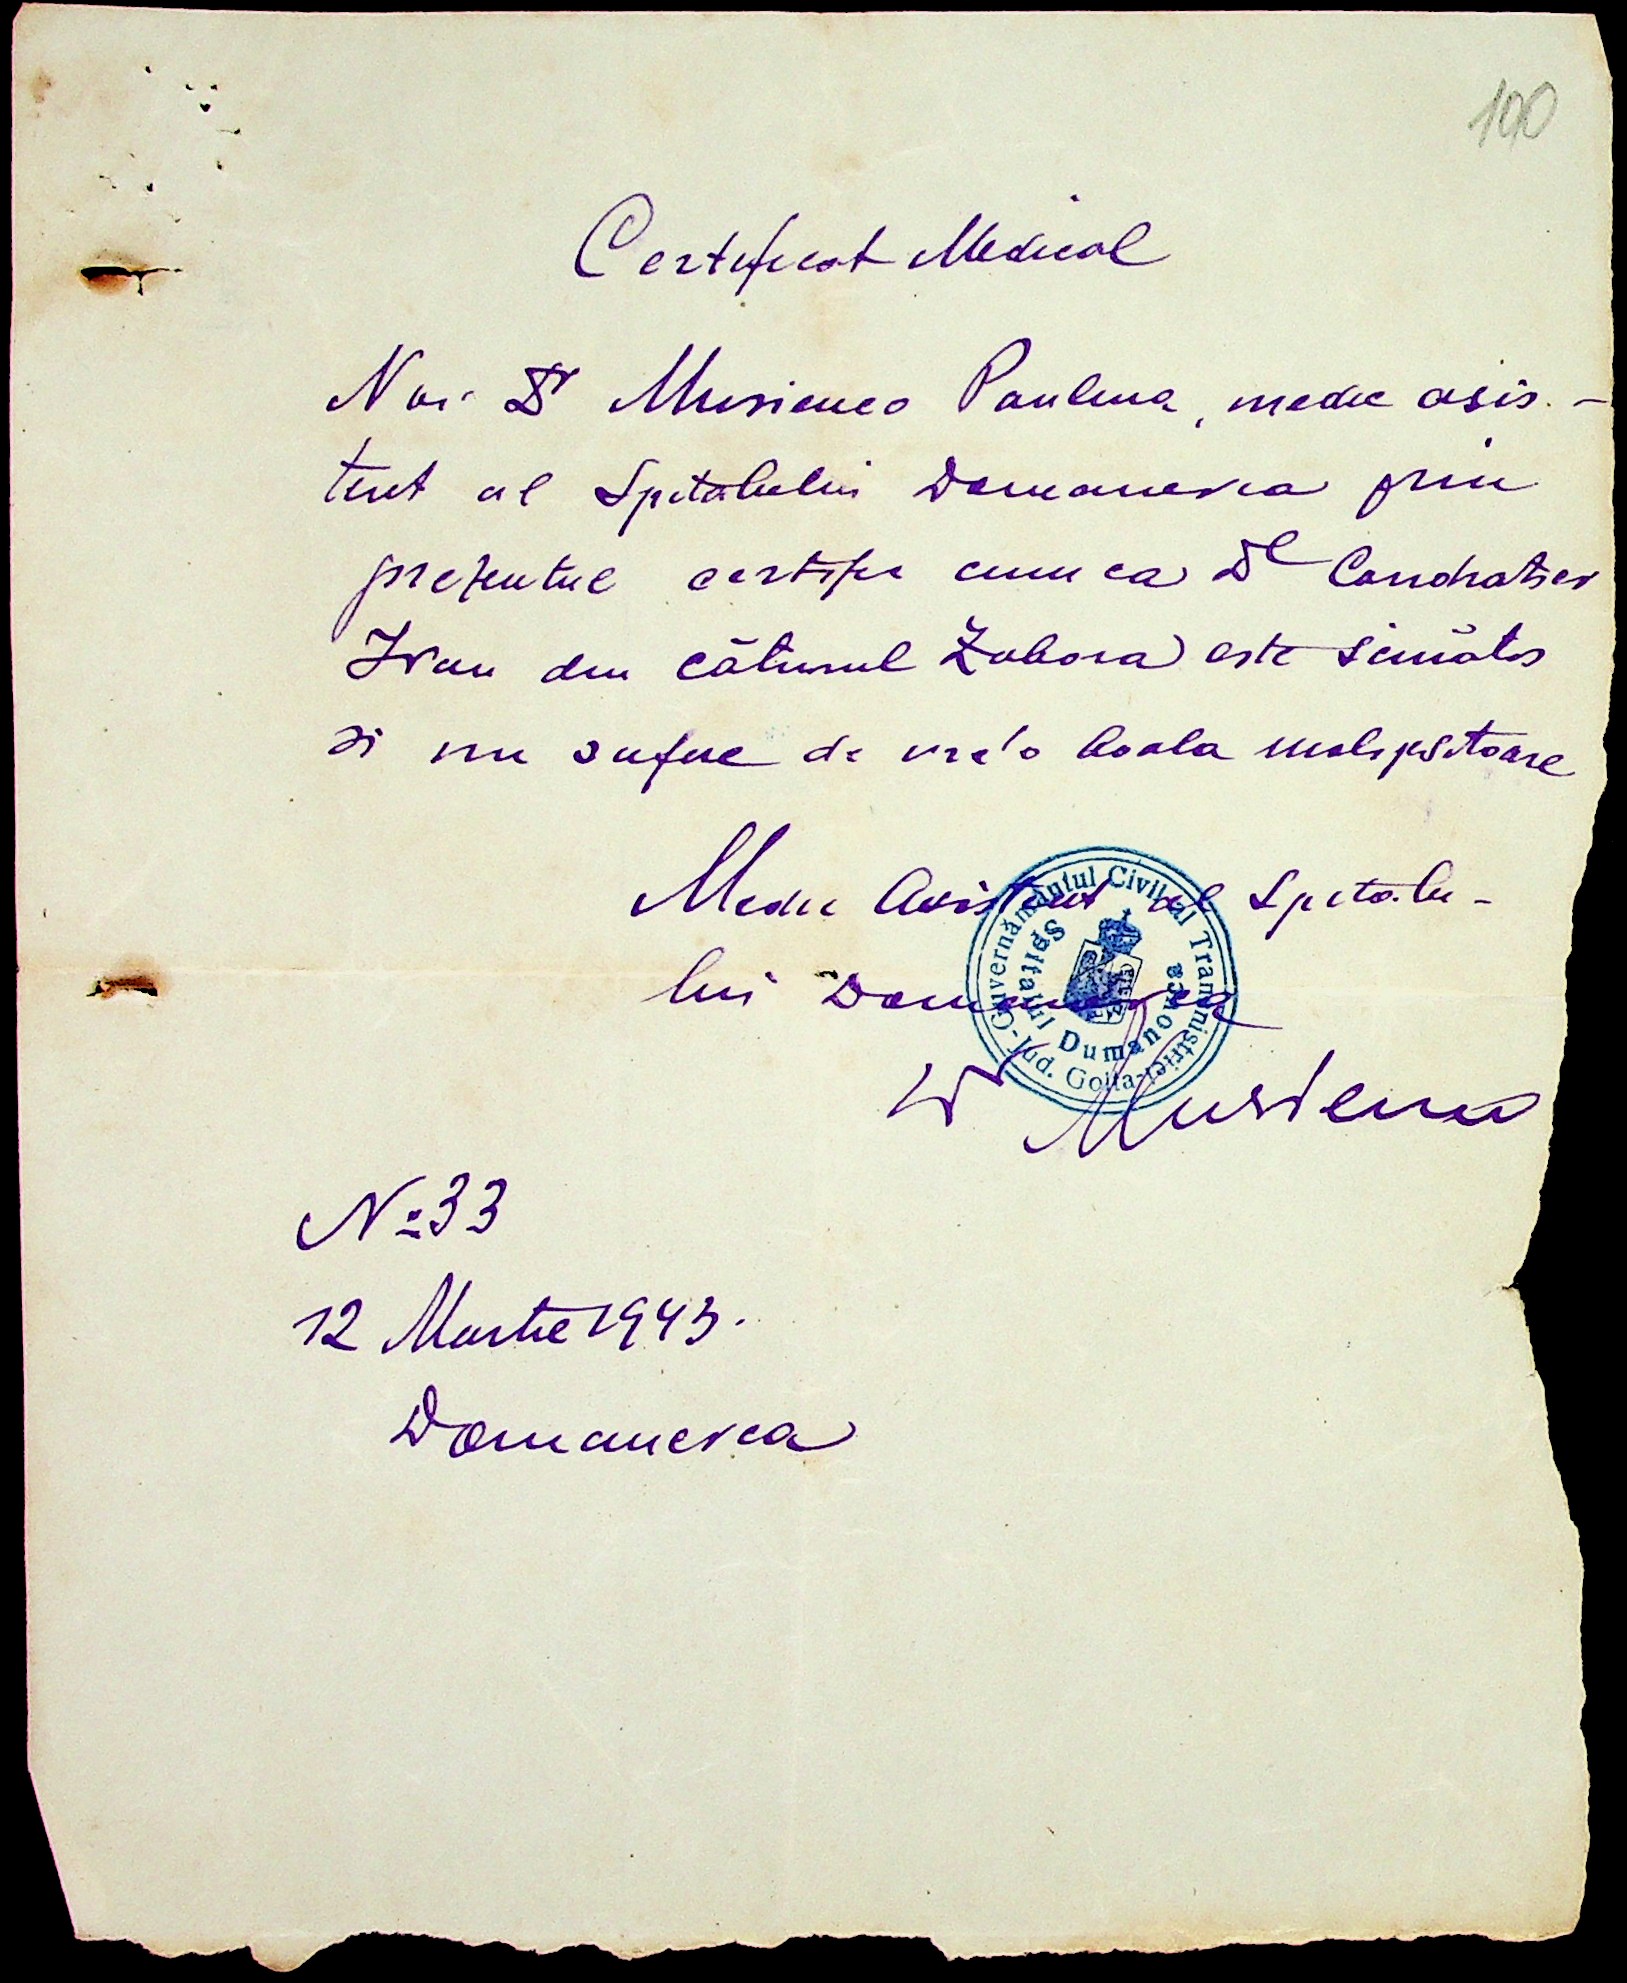 100
Certificat Medical
Noi Dr Musienco Paulina, medic asis-
tent al Spitalului Domanevca prin
prezentul certific cum ca Dl Condratiev
Ivan din cătunul Zabora este sănătos
si nu sufere de vre'o boala molipsitoare
Medic Asistent al Spitalu-
lui Domanevca
Dr Musienco
Guvernământul Civil al Transnistriei - Jud. Golta -
Spitalul Dumanovca
№ 33
12 Martie 1943.
Domanevca